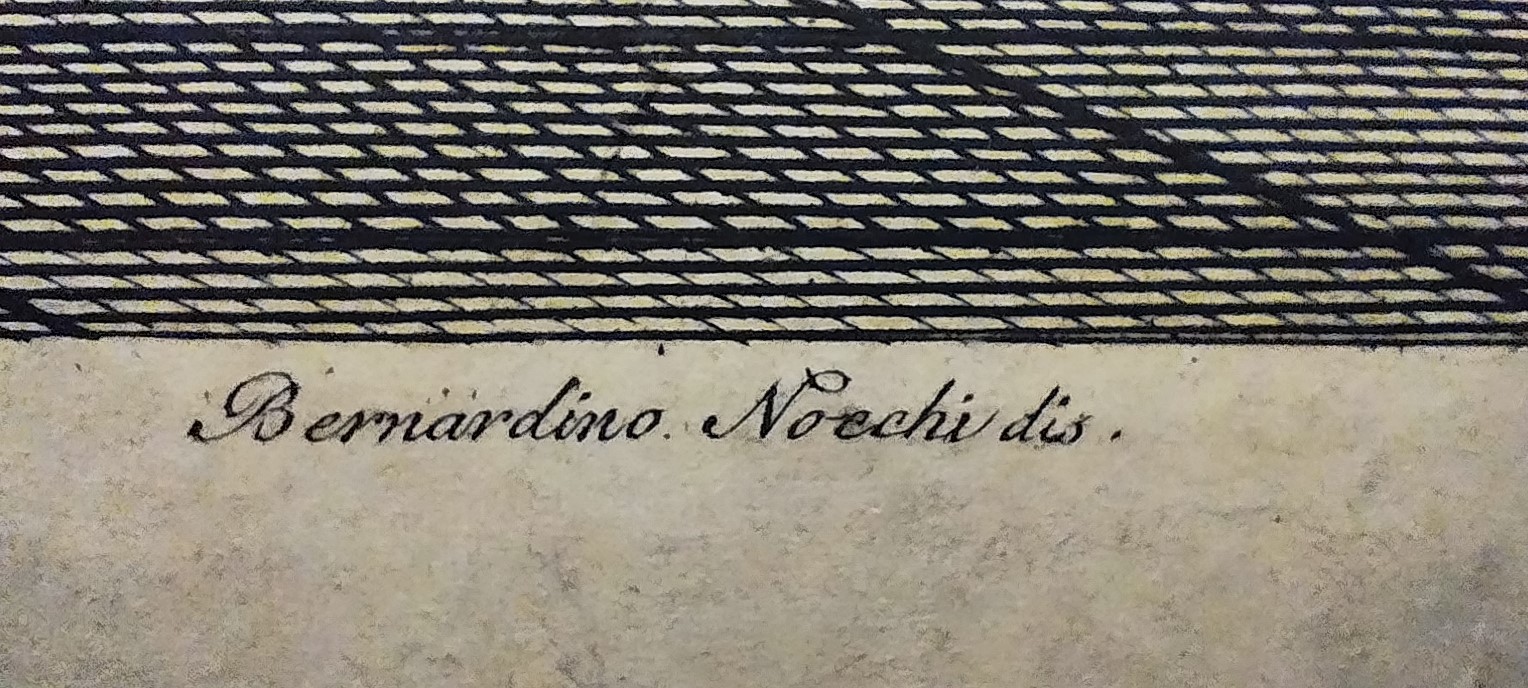 Bernardino. Nocchi dis.